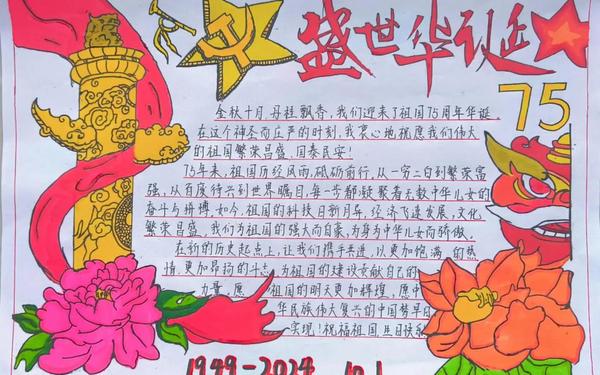 盛世华诞
75
金秋十月,丹桂飘香,我们迎来了祖国75周年华诞
在这个神圣而庄严的时刻,我衷心地祝愿我们伟大
的祖国繁荣昌盛、国泰民安!
75年来,祖国历经风雨,砥砺前行,从一穷二白到繁荣富
强,从百废待兴到世界瞩目,每一步都凝聚着无数中华儿女的
奋斗与拼搏,如今,祖国的科技日新月异,经济飞速发展,文化
繁荣昌盛,我们为祖国的强大而自豪,为身为中华儿女而骄傲。
在新的历史起点上,让我们携手共进,以更加饱满的热
情,更加昂扬的斗志,为祖国的建设贡献自己的
力量,愿祖国的明天更加辉煌,愿中
华民族伟大复兴的中国梦早日
实现!祝福祖国生日快乐
1949-2024 10.1